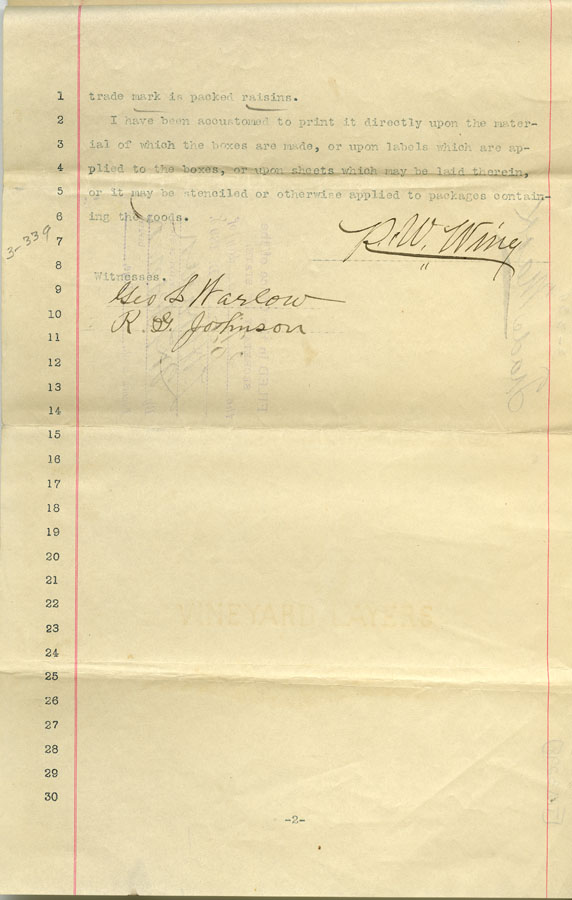 1 trade mark is packed raisins.
2 I have been accustomed to print it directly upon the mater-
3 ial of which the boxes are made, or upon labels which are ap-
4 plied to the boxes, or upon sheets which may be laid therein,
5 or it may be stenciled or otherwise applied to packages contain-
6 ing the goods.
3-339
7 R. W. Wing
8 Witnesses.
9 Geo L Warlow
10 K. G. Johnson
11
12
13
14
15
16
17
18
19
20
21
22 VINEYARD LAYERS
23
24
25
26
27
28
29
30
-2-